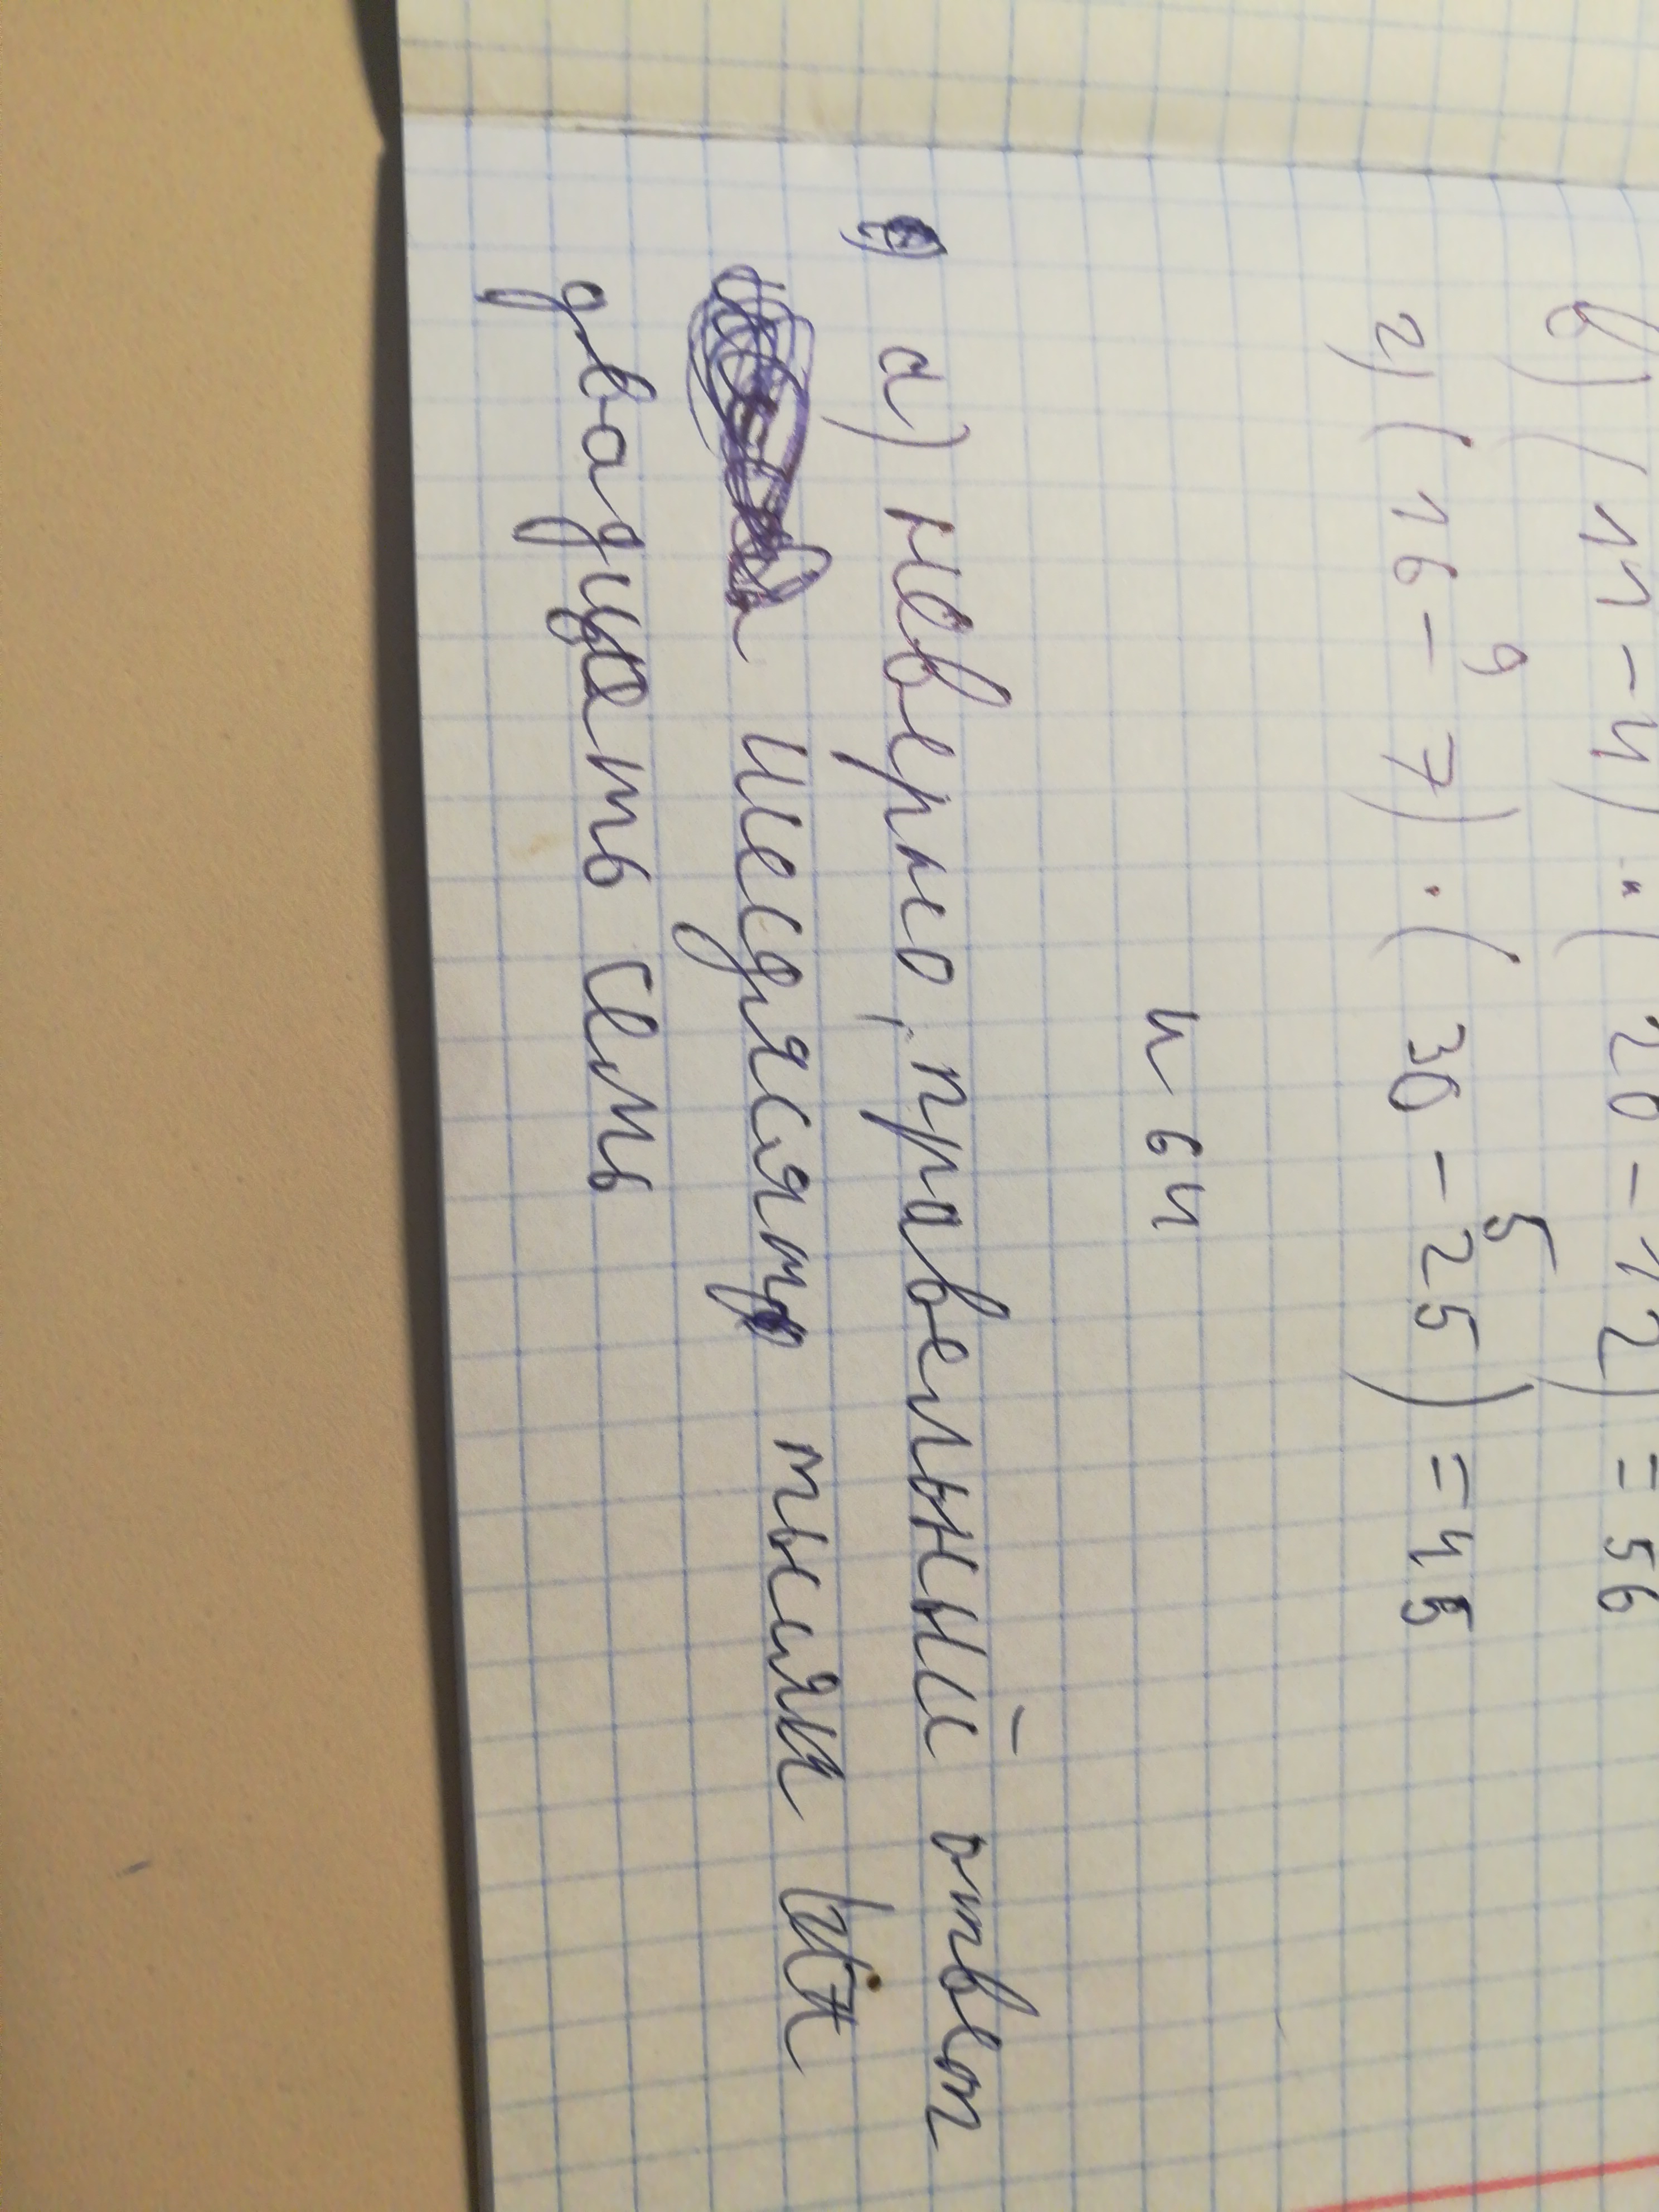 в) (11-4)·(20-12)=56
9 5
г) (16-7)·(30-25)=45
н 64
а) неверно, правельный ответ
Шесдясят тысяч
двадцеть семь